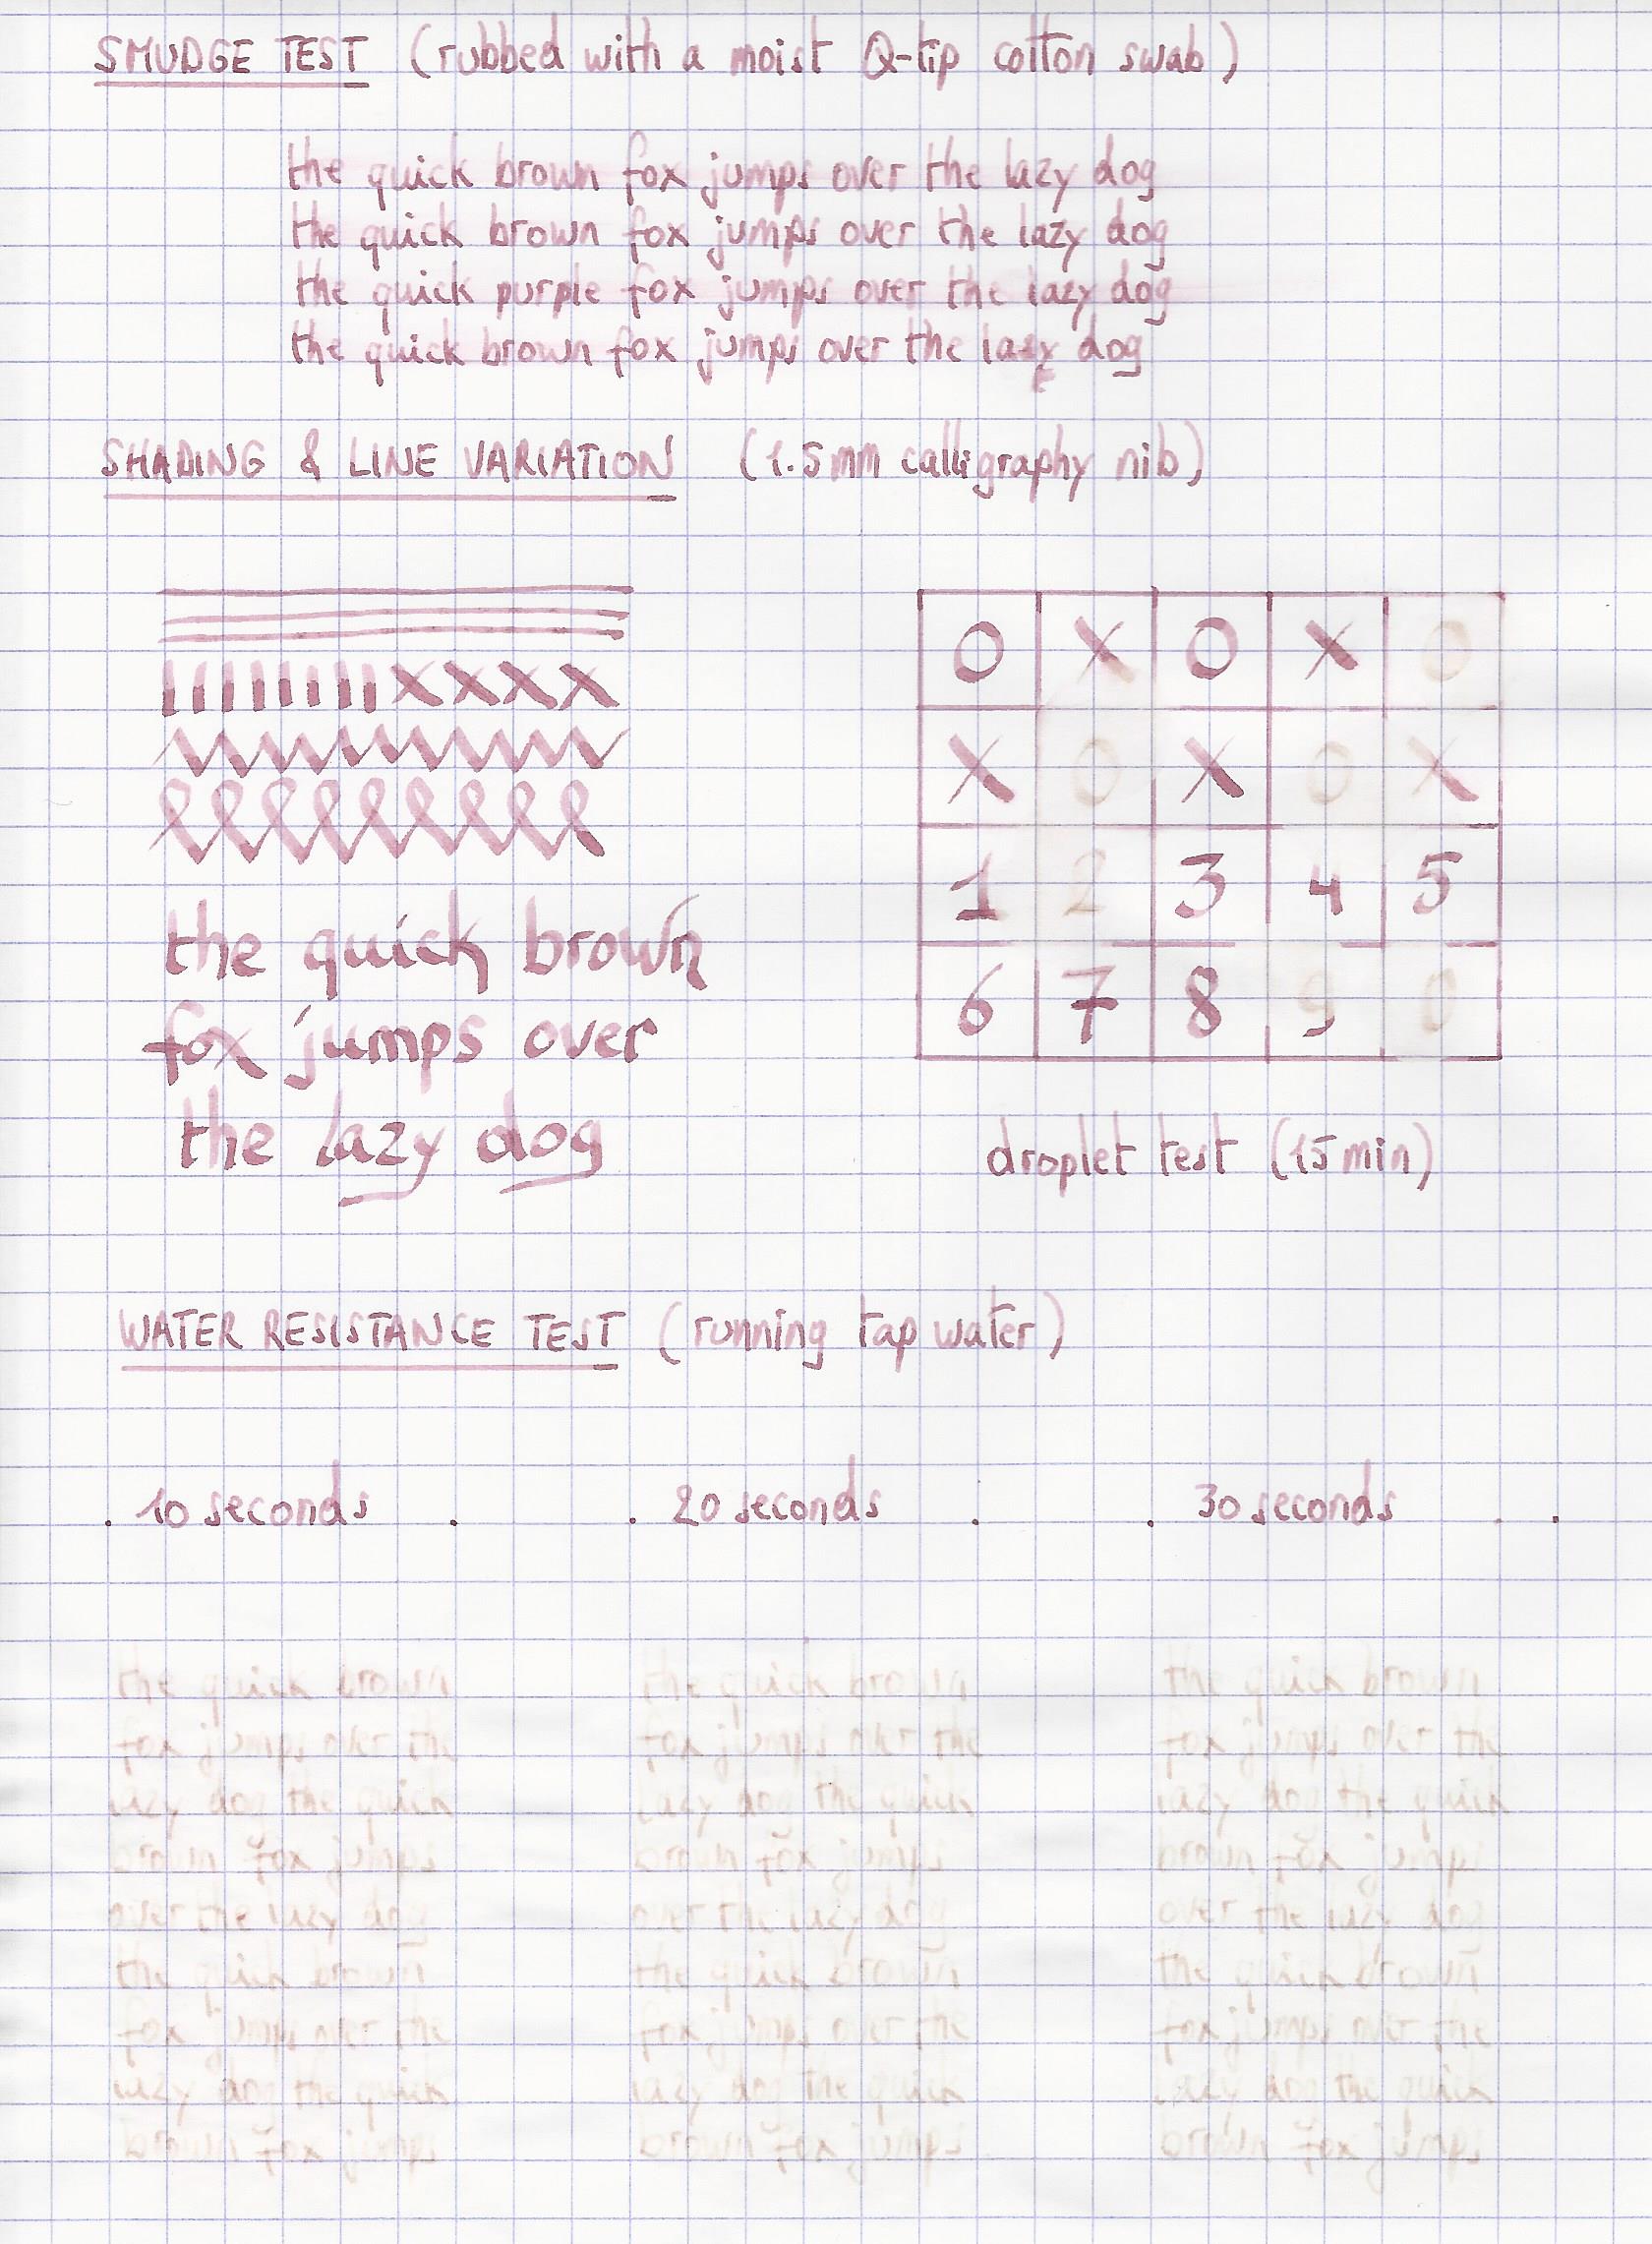 SMUDGE TEST (rubbed with a moist Q-tip cotton swab)
the quick brown fox jumps over the lazy dog
the quick brown fox jumps over the lazy dog
the quick purple fox jumps over the lazy dog
the quick brown fox jumps over the lazy dog
SHADING & LINE VARIATION (1.5mm calligraphy nib)
the quick brown
fox jumps over
the lazy dog
0 X 0 X 0
X 0 X 0 X
1 2 3 4 5
6 7 8 9 0
droplet test (15min)
WATER RESISTANCE TEST (running tap water)
. 10 seconds . . 20 seconds . . 30 seconds . .
the quick brown
fox jumps over the
lazy dog the quick
brown fox jumps
over the lazy dog
the quick brown
fox jumps over the
lazy dog the quick
brown fox jumps
the quick brown
fox jumps over the
lazy dog the quick
brown fox jumps
over the lazy dog
the quick brown
fox jumps over the
lazy dog the quick
brown fox jumps
the quick brown
fox jumps over the
lazy dog the quick
brown fox jumps
over the lazy dog
the quick brown
fox jumps over the
lazy dog the quick
brown fox jumps